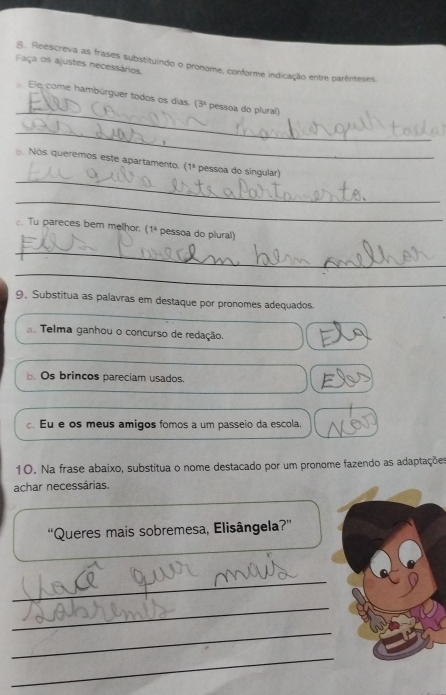 8. Reescreva as frases substituindo o pronome, conforme indicação entre parênteses.
Faça os ajustes necessários.
a. Ele come hambúrguer todos os dias. (3ª pessoa do plural)
Elas comem hamburguer todos
os dias.
b. Nós queremos este apartamento. (1ª pessoa do singular)
Eu este apartamento.
c. Tu pareces bem melhor. (1ª pessoa do plural)
Elas Parecem bem melhor
9. Substitua as palavras em destaque por pronomes adequados.
a. Telma ganhou o concurso de redação.
Ela
b. Os brincos pareciam usados.
Elos
c. Eu e os meus amigos fomos a um passeio da escola.
Nós
10. Na frase abaixo, substitua o nome destacado por um pronome fazendo as adaptações
achar necessárias.
"Queres mais sobremesa, Elisângela?"
Você quer mais